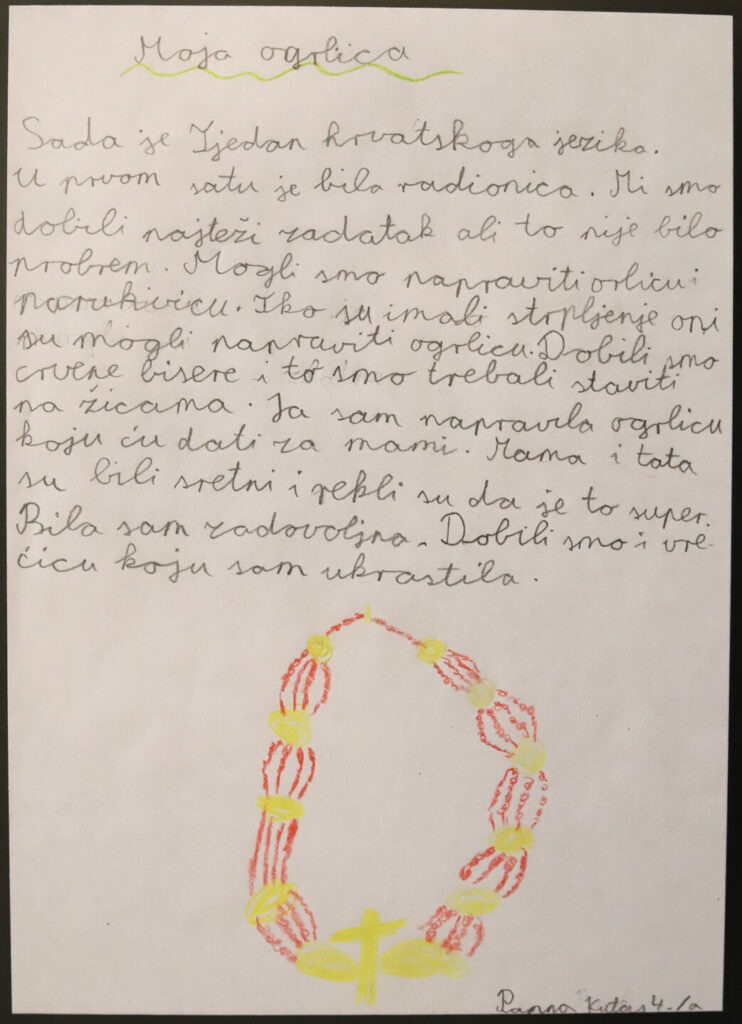 Moja ogrlica
Sada je Tjedan hrvatskoga jezika.
U prvom satu je bila radionica. Mi smo
dobili najteži zadatak ali to nije bilo
probrem. Mogli smo napraviti orlicu i
narukivicu. Tko su imali strpljenje oni
su mogli napraviti ogrlicu. Dobili smo
crvene bisere i to smo trebali staviti
na žicama. Ja sam napravila ogrlicu
koju ću dati za mami. Mama i tata
su bili sretni i rekli su da je to super.
Bila sam zadovoljna. Dobili smo i vre-
ćicu koju sam ukrastila.
Panna Kutas 4./a